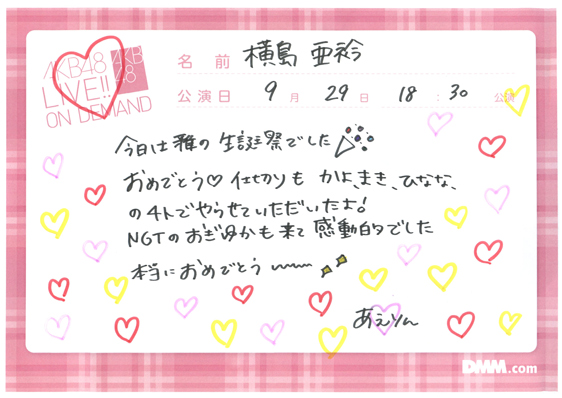 AKB48
LIVE!!
ON DEMAND
AKB
48
名前 横島 亜衿
公演日 9月 29日 18:30 公演
今日は雅の生誕祭でした
おめでとう♡ 仕切りも かよ、まき、ひなな、
の4人でやらせていただいたよ!
NGTのおぎゆかも来て 感動的でした
本当におめでとう〜〜
あえりん
DMM.com